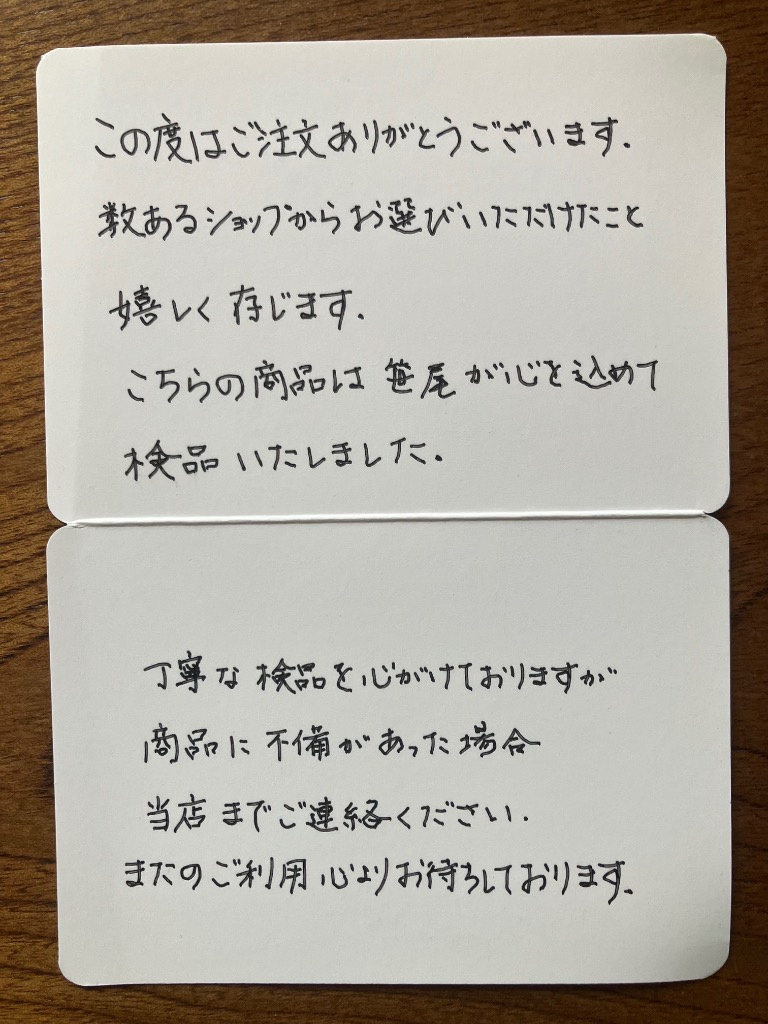 この度はご注文ありがとうございます.
数あるショップからお選びいただけたこと
嬉しく存じます.
こちらの商品は笹尾が心を込めて
検品いたしました.
丁寧な検品を心がけておりますが
商品に不備があった場合
当店までご連絡ください.
またのご利用心よりお待ちしております.